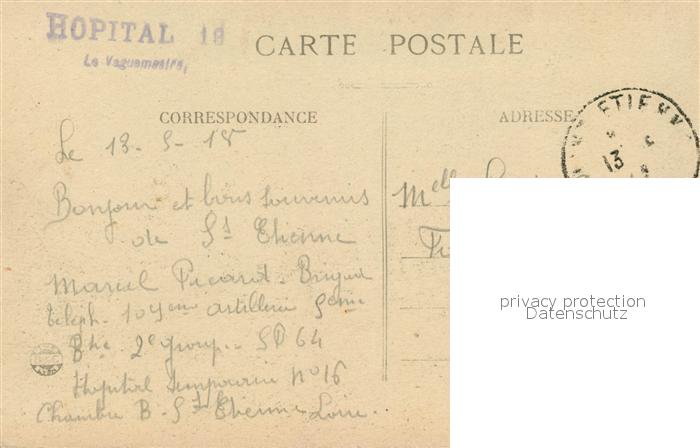 HOPITAL 18
Le Vaguemestre,
CARTE POSTALE
CORRESPONDANCE
ADRESSE
ETIENNE
13
Le 13-5-18
Bonjour et bons souvenirs
de St Etienne
Marcel Picard. Brigad
téléph. 109eme artillerie 5eme
Bie 2e group. - SP 64
Hopital temporaire no 16
Chambre B. St Etienne Loire.
Melle
privacy protection
Datenschutz